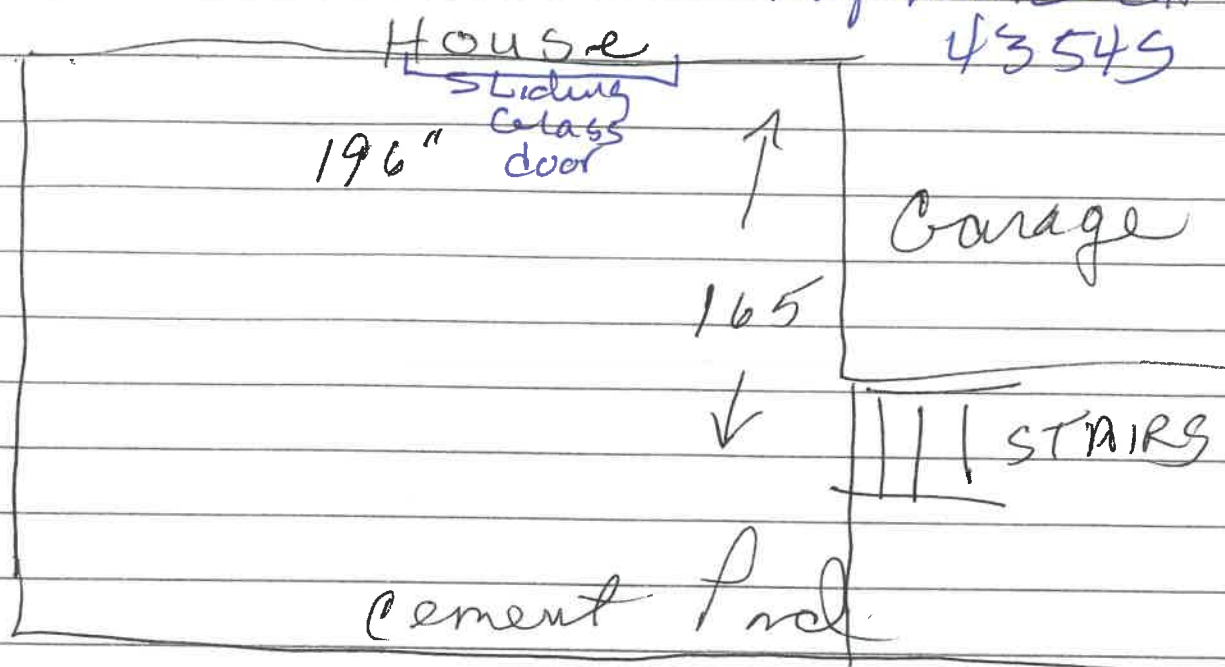 House
43545
Sliding
Glass
door
196"
Garage
165
STAIRS
Cement Pad